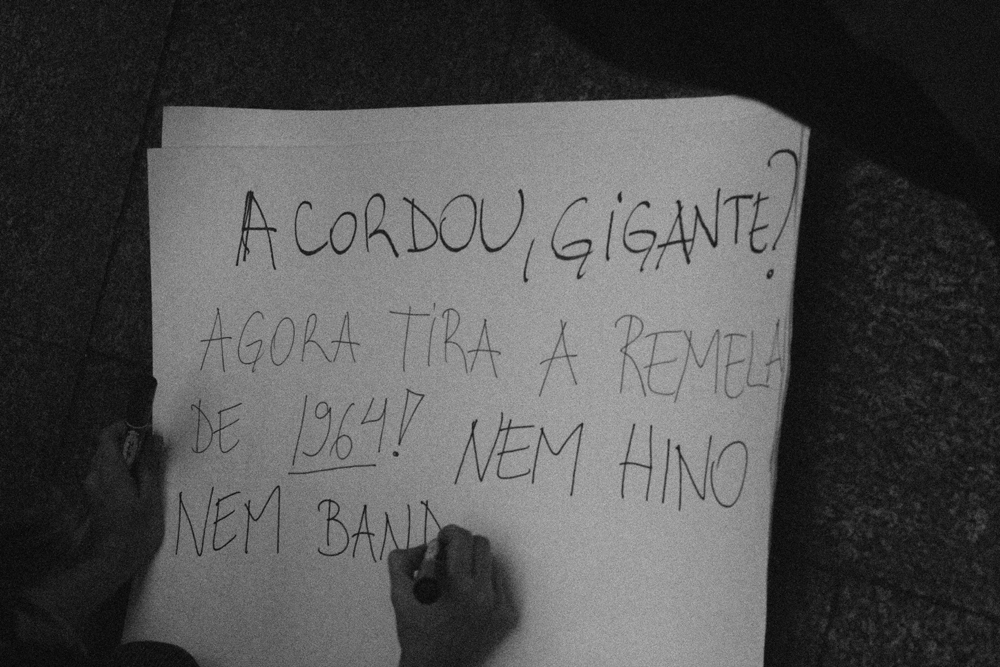 ACORDOU, GIGANTE?
AGORA TIRA A REMELA
DE 1964! NEM HINO
NEM BAND